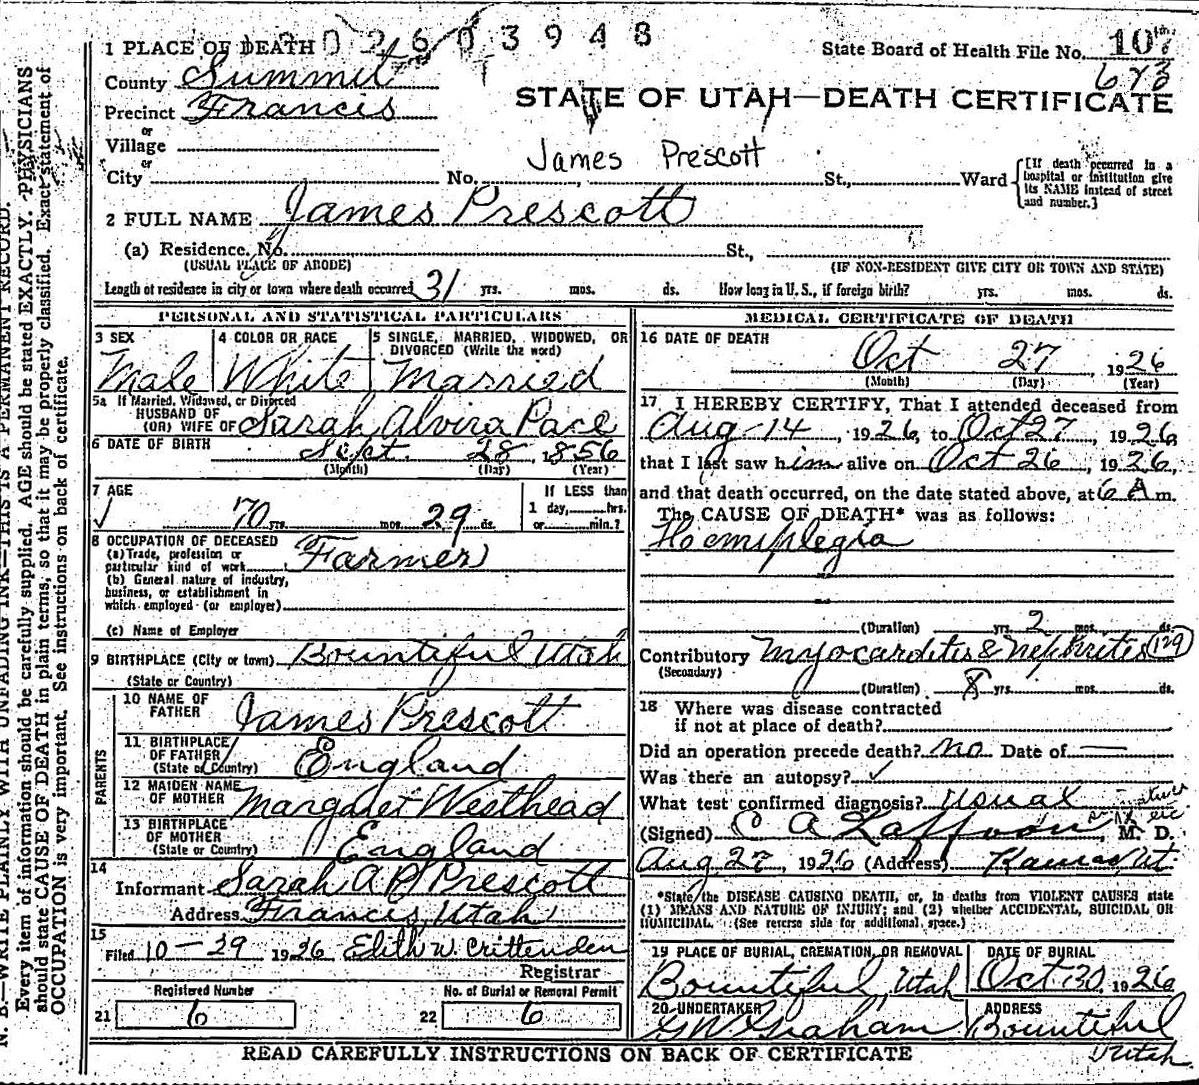 N. B.—WRITE PLAINLY WITH UNFADING INK—THIS IS A PERMANENT RECORD.
Every item of information should be carefully supplied. AGE should be stated EXACTLY. PHYSICIANS
should state CAUSE OF DEATH in plain terms, so that it may be properly classified. Exact statement of
OCCUPATION is very important. See instructions on back of certificate.
2603948
1 PLACE OF DEATH
State Board of Health File No. 107
673
County Summit
STATE OF UTAH—DEATH CERTIFICATE
Precinct Francis
or
Village
or
James Prescott
City No. St., Ward
[If death occurred in a
hospital or institution give
its NAME instead of street
and number.]
2 FULL NAME James Prescott
(a) Residence. No. St.,
(USUAL PLACE OF ABODE) (IF NON-RESIDENT GIVE CITY OR TOWN AND STATE)
Length of residence in city or town where death occurred 31 yrs. mos. ds. How long in U. S., if foreign birth? yrs. mos. ds.
PERSONAL AND STATISTICAL PARTICULARS
3 SEX
Male
4 COLOR OR RACE
White
5 SINGLE, MARRIED, WIDOWED, OR
DIVORCED (Write the word)
Married
5a If Married, Widowed, or Divorced
HUSBAND OF
(OR) WIFE OF Sarah Alvira Pace
6 DATE OF BIRTH Sept. 28, 1856
(Month) (Day) (Year)
7 AGE
70 yrs. mos. 29 ds.
If LESS than
1 day, hrs.
or min.?
8 OCCUPATION OF DECEASED
(a) Trade, profession or
particular kind of work Farmer
(b) General nature of industry,
business, or establishment in
which employed (or employer)
(c) Name of Employer
9 BIRTHPLACE (City or town) Bountiful Utah
(State or Country)
PARENTS
10 NAME OF
FATHER James Prescott
11 BIRTHPLACE
OF FATHER
(State or Country) England
12 MAIDEN NAME
OF MOTHER Margaret Westhead
13 BIRTHPLACE
OF MOTHER
(State or Country) England
14
Informant Sarah A P Prescott
Address Francis, Utah
15
Filed 10-29 1926 Edith W. Crittenden
Registrar
Registered Number
21 6
No. of Burial or Removal Permit
22 6
MEDICAL CERTIFICATE OF DEATH
16 DATE OF DEATH
Oct 27 1926
(Month) (Day) (Year)
17 I HEREBY CERTIFY, That I attended deceased from
Aug 14, 1926, to Oct 27, 1926
that I last saw him alive on Oct 26, 1926,
and that death occurred, on the date stated above, at 6 A m.
The CAUSE OF DEATH* was as follows:
Hoemiplegia
(Duration) yrs. 2 mos. ds.
Contributory Myocarditis & Nephrites 129
(Secondary)
(Duration) 8 yrs. mos. ds.
18 Where was disease contracted
if not at place of death?
Did an operation precede death? no Date of —
Was there an autopsy? ✓
What test confirmed diagnosis? Usual
(Signed) M. D.
Aug 27 1926 (Address) Kamas, Ut.
*State the DISEASE CAUSING DEATH, or, in deaths from VIOLENT CAUSES state
(1) MEANS AND NATURE OF INJURY; and (2) whether ACCIDENTAL, SUICIDAL OR
HOMICIDAL. (See reverse side for additional space.)
19 PLACE OF BURIAL, CREMATION, OR REMOVAL
Bountiful, Utah
DATE OF BURIAL
Oct 30, 1926
20 UNDERTAKER
G W Graham
ADDRESS
Bountiful
Utah
READ CAREFULLY INSTRUCTIONS ON BACK OF CERTIFICATE